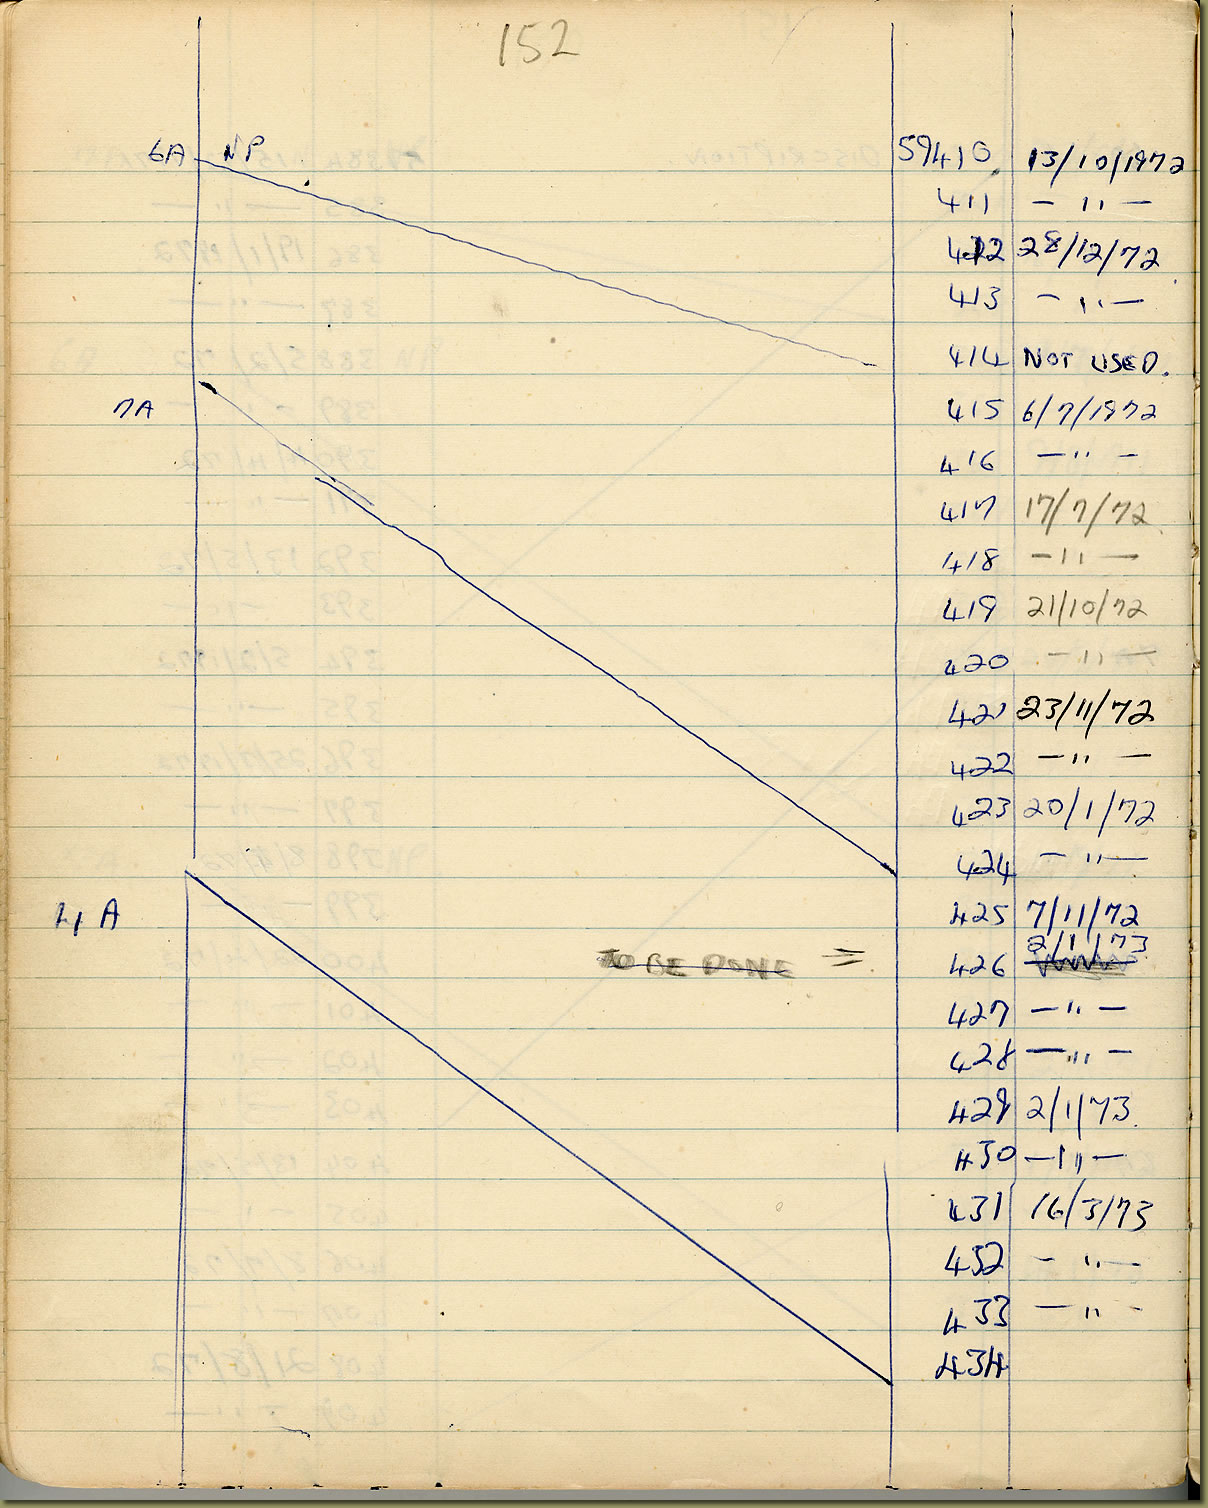 152
6A NP 59410 13/10/1972
411 — " —
412 28/12/72
413 — " —
414 NOT USED.
7A 415 6/7/1972
416 — " —
417 17/7/72
418 — " —
419 21/10/72
420 — " —
421 23/11/72
422 — " —
423 20/1/72
424 — " —
4A 425 7/11/72
TO BE DONE = 426 2/1/73
427 — " —
428 — " —
429 2/1/73
430 — " —
431 16/3/73
432 — " —
433 — " —
434